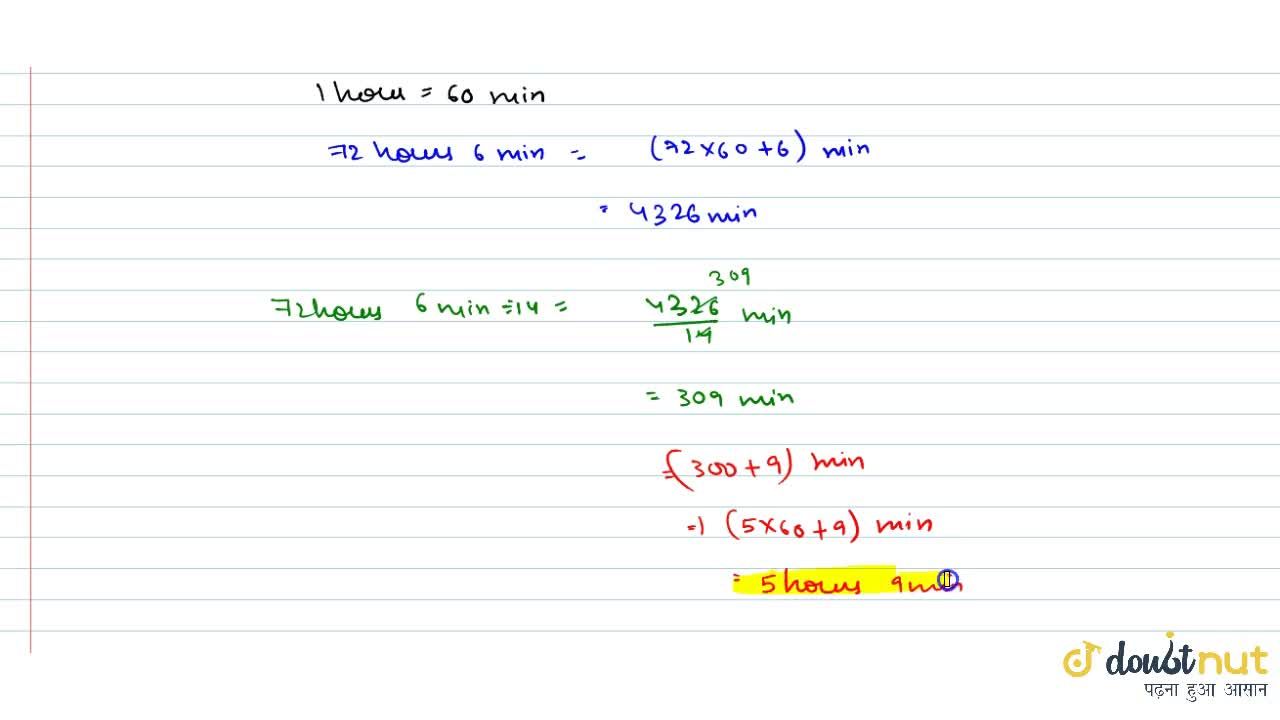 1 hour = 60 min
72 hours 6 min = (72×60+6) min
= 4326 min
309
72 hours 6 min ÷ 14 = 4326/14 min
= 309 min
= (300+9) min
= (5×60+9) min
= 5 hours 9 min
doubtnut
पढ़ना हुआ आसान